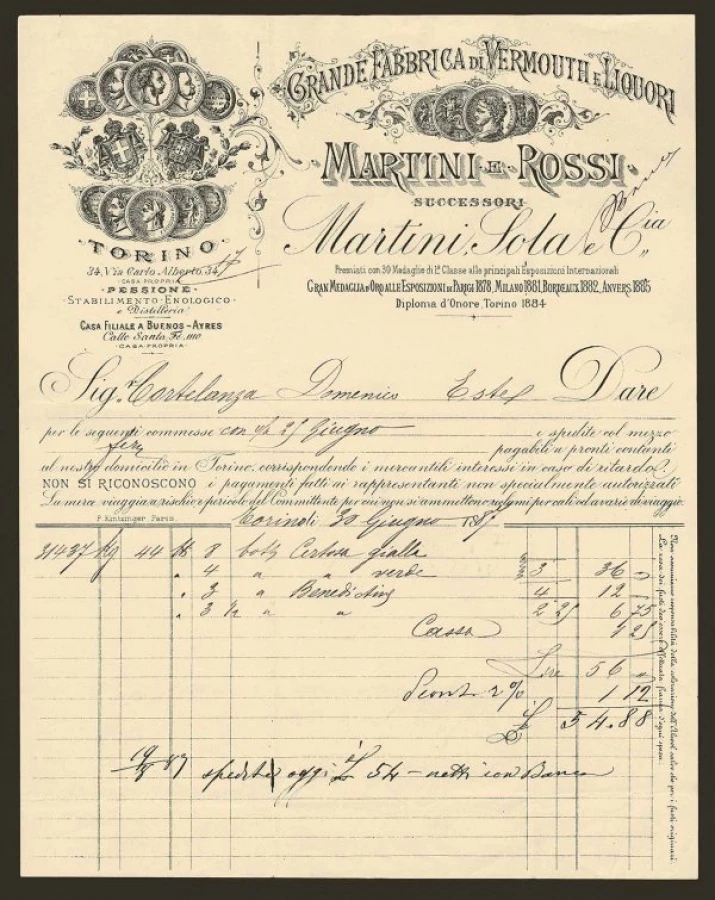 GRANDE FABBRICA DI VERMOUTH E LIQUORI
MARTINI E ROSSI
SUCCESSORI
Martini, Sola e Cia
Premiati con 30 Medaglie di 1a Classe alle principali Esposizioni Internazionali
GRAN MEDAGLIA D'ORO ALLE ESPOSIZIONI DI PARIGI 1878, MILANO 1881, BORDEAUX 1882, ANVERS 1885
Diploma d'Onore, Torino 1884
TORINO
34, Via Carlo Alberto, 34
CASA PROPRIA
PESSIONE
STABILIMENTO ENOLOGICO
e Distilleria
CASA FILIALE A BUENOS-AYRES
Calle Santa Fé, 1110
CASA PROPRIA
Sigr. Cortelanza Domenico Este Dare
per le seguenti commesse con 25 Giugno e spedite col mezzo
ferr pagabili a pronti contanti
al nostro domicilio in Torino, corrispondendo i mercantili interessi in caso di ritardo.
NON SI RICONOSCONO i pagamenti fatti ai rappresentanti non specialmente autorizzati
La merce viaggia a rischio e pericolo del Committente per cui non si ammettono reclami per cali od avarie di viaggio.
F. Kintzinger Paris.
Torino li 30 Giugno 1887
31437 Kg 44 8 bott Certosa gialla
" 4 " " verde 3 36 "
" 3 " Benedictins 4 12 "
" 3 1/2 " " 2 25 6 75
Cassa 1 25
Lire 56 "
Scont. 2% 1 12
£ 54.88
87 spedite oggi £ 54 - netti con Banca
Non assumiamo responsabilità della colorazione dell'Alcool salvo che per i fusti originari.
La resa dei fusti deve essere effettuata franca d'ogni spesa.